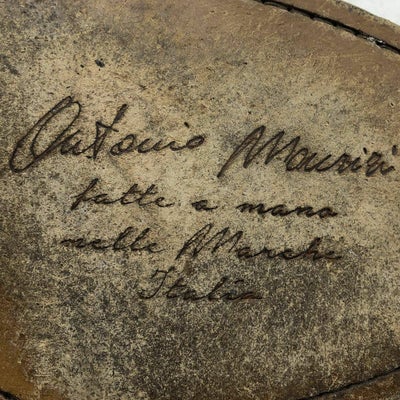 Antonio Maurizi
fatte a mano
nelle Marche
Italia